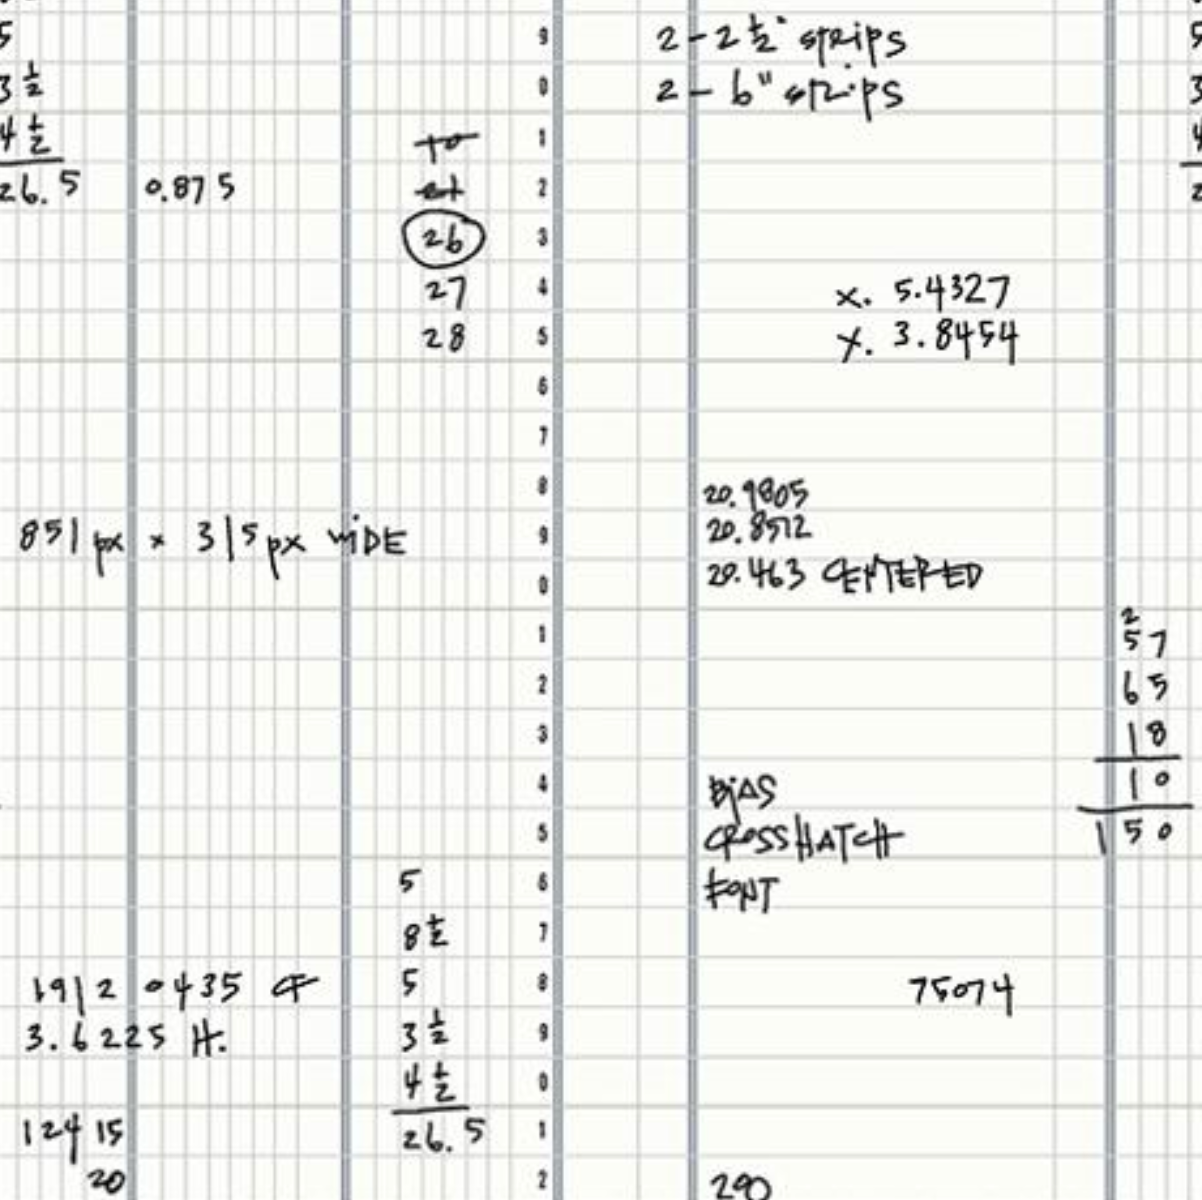 5
3 ½
4 ½
26.5
0.875
10
21
26
27
28
851px × 315px WIDE
1912 0435 CF
3.6225 H.
124 15
20
5
8 ½
5
3 ½
4 ½
26.5
9
0
1
2
3
4
5
6
7
8
9
0
1
2
3
4
5
6
7
8
9
0
1
2
2 - 2 ½" strips
2 - 6" strips
x. 5.4327
y. 3.8454
20.9805
20.8512
20.463 CENTERED
BiAS
CROSSHATCH
FONT
75074
290
2
57
65
18
10
150
5
3
4
2